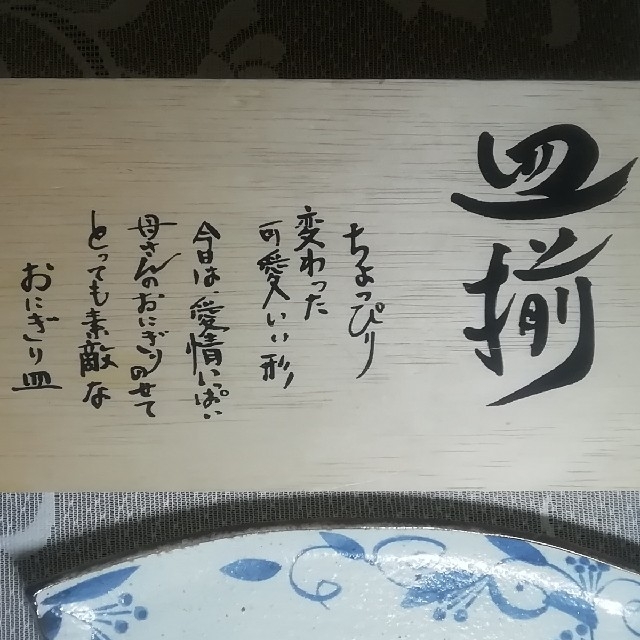 皿揃
ちょっぴり
変わった
可愛いい形
今日は、愛情いっぱい
母さんのおにぎりのせて
とっても素敵な
おにぎり皿